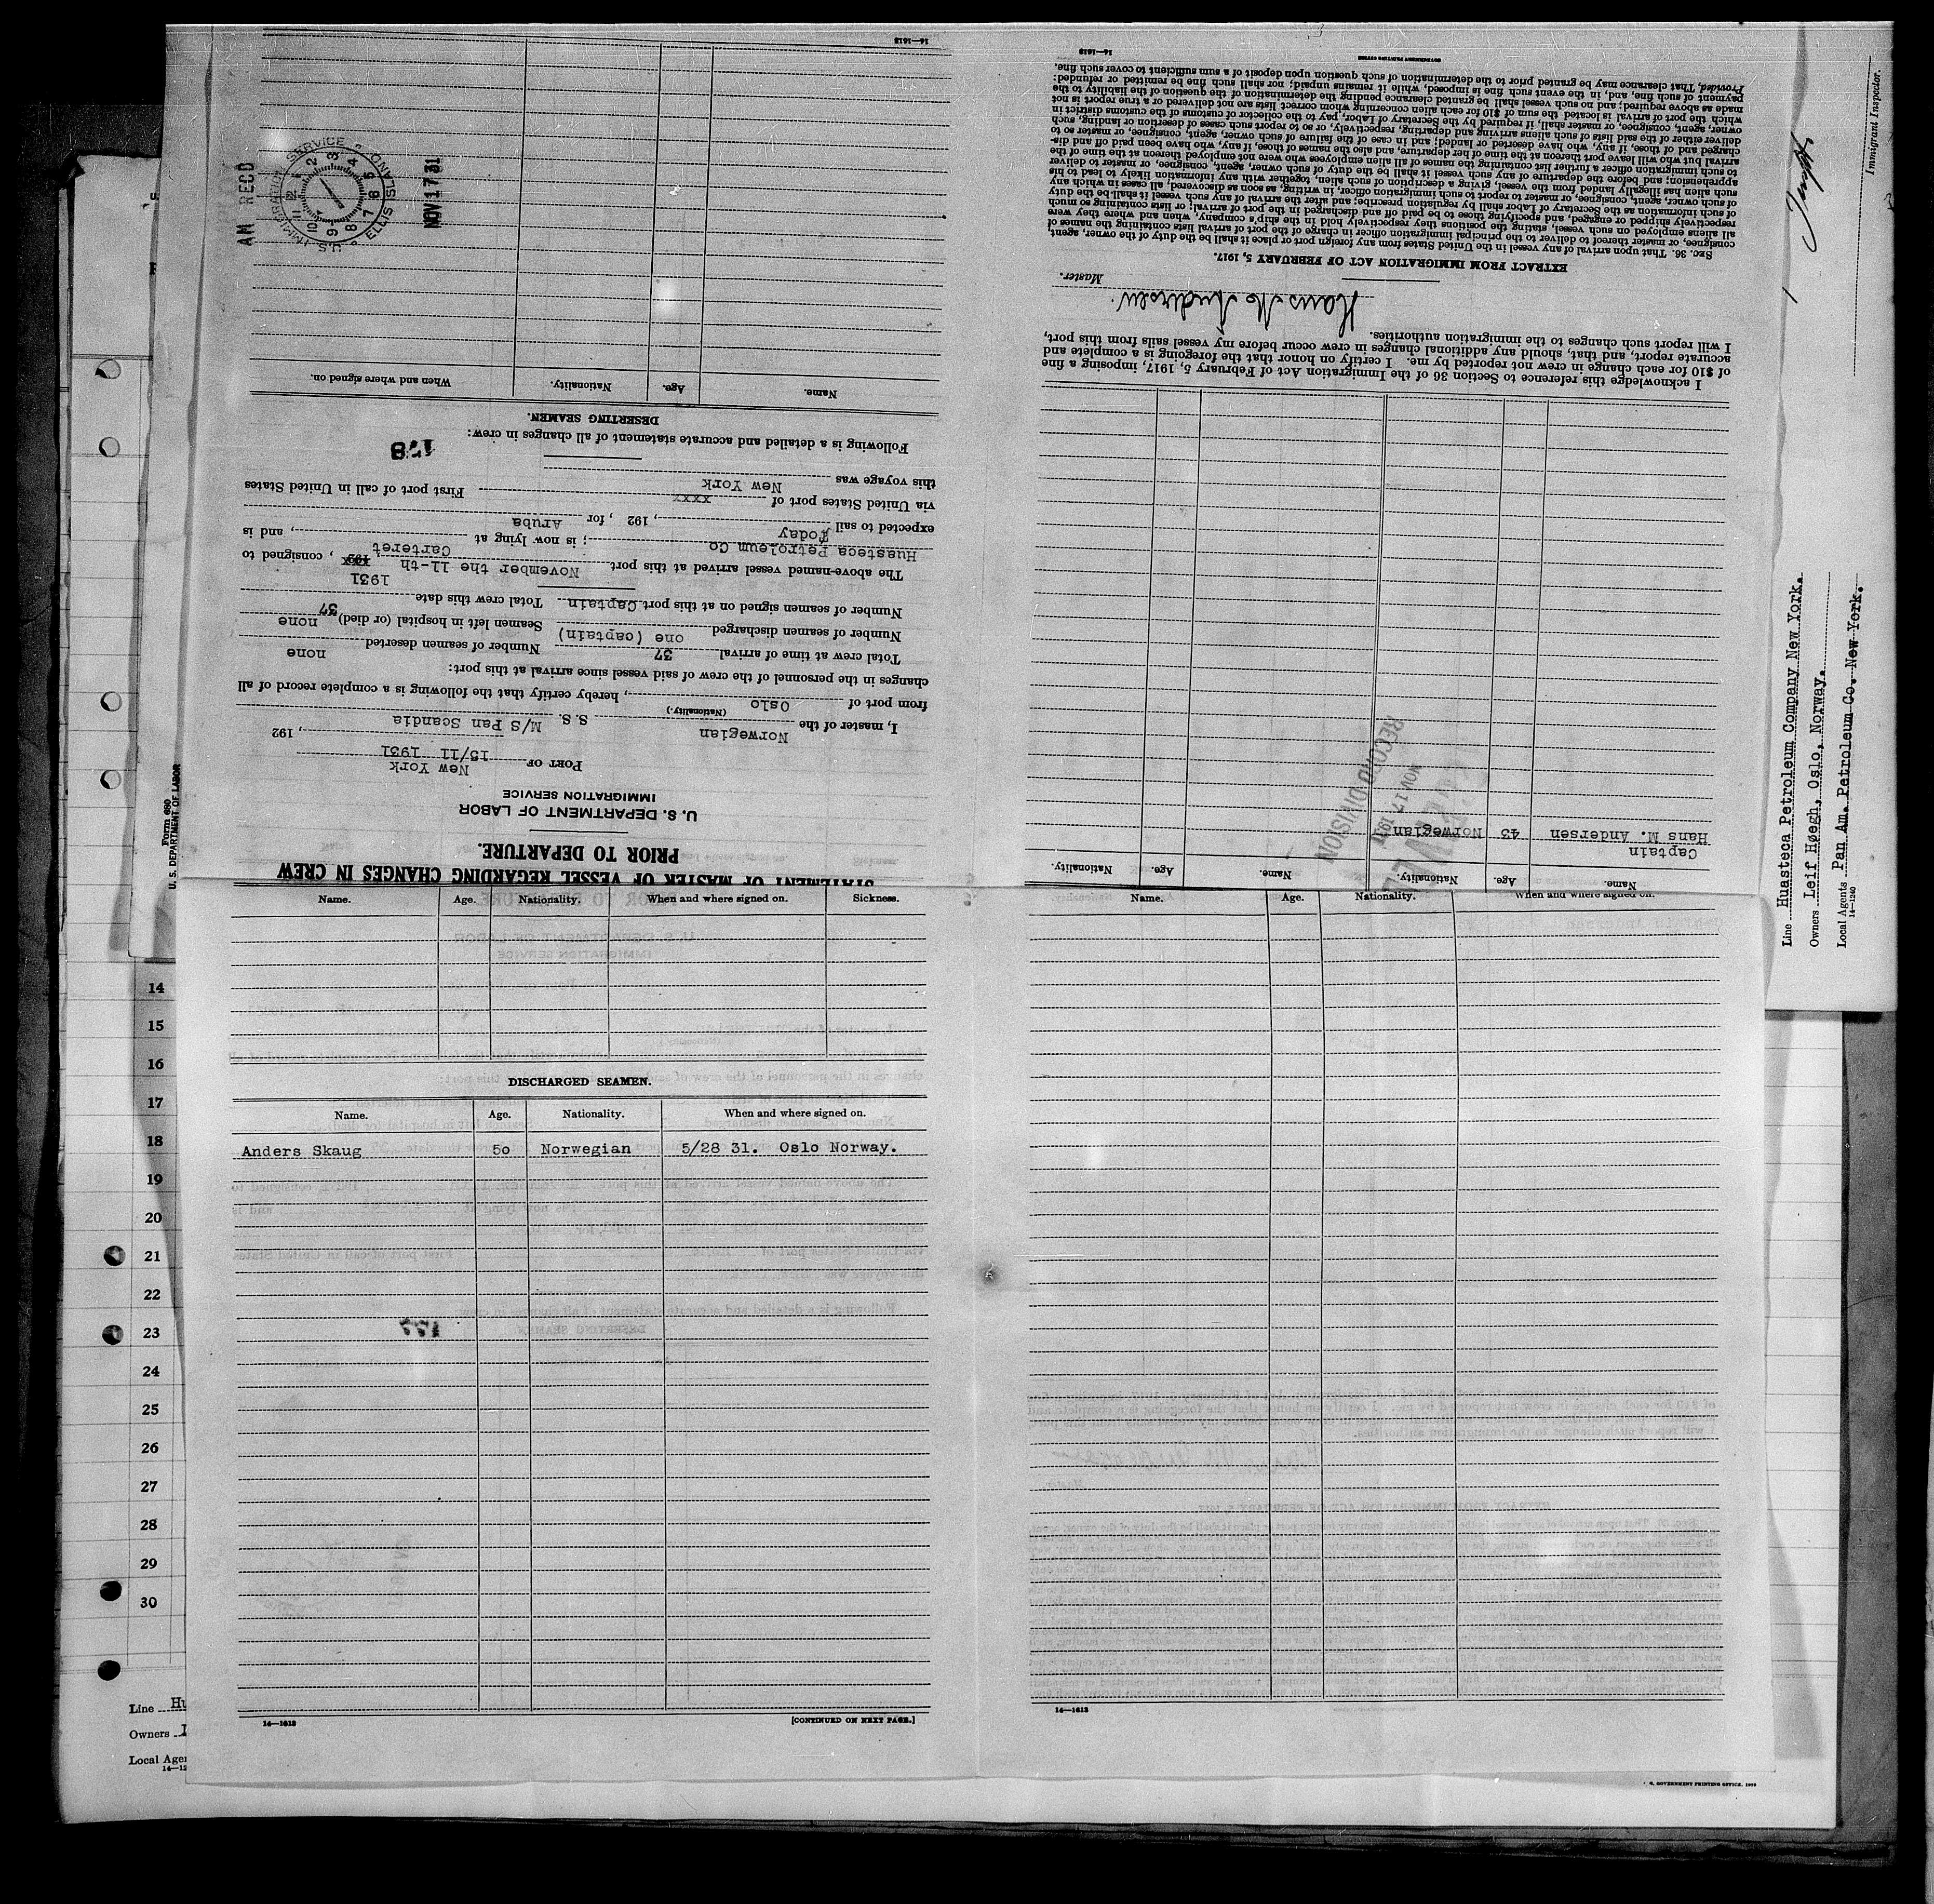 STATEMENT OF MASTER OF VESSEL REGARDING CHANGES IN CREW
PRIOR TO DEPARTURE.
U. S. DEPARTMENT OF LABOR
IMMIGRATION SERVICE
PORT OF New York
15/11 1931, 192
I, master of the Norwegian S. S. M/S Pan Scandia
(Nationality.)
from port of Oslo, hereby certify that the following is a complete record of all
changes in the personnel of the crew of said vessel since arrival at this port:
Total crew at time of arrival 37 Number of seamen deserted none
Number of seamen discharged one (captain) Seamen left in hospital (or died) none
Number of seamen signed on at this port Captain Total crew this date 37
The above-named vessel arrived at this port November the 11-th 1931, consigned to
Huasteca Petroleum Co; is now lying at Carteret, and is
expected to sail Today, 192 , for Aruba
via United States port of xxxx First port of call in United States
this voyage was New York
178
Following is a detailed and accurate statement of all changes in crew:
DESERTING SEAMEN.
Name. Age. Nationality. When and where signed on.
AM RECD
NOV 17 31
U.S. IMMIGRATION SERVICE ELLIS ISLAND
1 2 3 4 5 6 7 8 9 10 11 12
16—1613
Name. Age. Nationality. Name. Age. Nationality.
Captain
Hans M. Andersen 43 Norwegian
NOV 17 1931
RECORD DIVISION
I acknowledge this reference to Section 36 of the Immigration Act of February 5, 1917, imposing a fine
of $10 for each change in crew not reported by me. I certify on honor that the foregoing is a complete and
accurate report, and that, should any additional changes in crew occur before my vessel sails from this port,
I will report such changes to the immigration authorities.
Hans M. Andersen.
Master.
EXTRACT FROM IMMIGRATION ACT OF FEBRUARY 5, 1917.
SEC. 36. That upon arrival of any vessel in the United States from any foreign port or place it shall be the duty of the owner, agent,
consignee, or master thereof to deliver to the principal immigration officer in charge of the port of arrival lists containing the names of
all aliens employed on such vessel, stating the positions they respectively hold in the ship's company, when and where they were
respectively shipped or engaged, and specifying those to be paid off and discharged in the port of arrival; or lists containing so much
of such information as the Secretary of Labor shall by regulation prescribe; and after the arrival of any such vessel it shall be the duty
of such owner, agent, consignee, or master to report to such immigration officer, in writing, as soon as discovered, all cases in which any
such alien has illegally landed from the vessel, giving a description of such alien, together with any information likely to lead to his
apprehension; and before the departure of any such vessel it shall be the duty of such owner, agent, consignee, or master to deliver
to such immigration officer a further list containing the names of all alien employees who were not employed thereon at the time of the
arrival but who will leave port thereon at the time of her departure, and also the names of those, if any, who have been paid off and dis-
charged and of those, if any, who have deserted or landed; and in case of the failure of such owner, agent, consignee, or master so to
deliver either of the said lists of such aliens arriving and departing, respectively, or so to report such cases of desertion or landing, such
owner, agent, consignee, or master shall, if required by the Secretary of Labor, pay to the collector of customs of the customs district in
which the port of arrival is located the sum of $10 for each alien concerning whom correct lists are not delivered or a true report is not
made as above required; and no such vessel shall be granted clearance pending the determination of the question of the liability to the
payment of such fine, and, in the event such fine is imposed, while it remains unpaid; nor shall such fine be remitted or refunded:
Provided, That clearance may be granted prior to the determination of such question upon deposit of a sum sufficient to cover such fine.
16—1613
GOVERNMENT PRINTING OFFICE
Name. Age. Nationality. When and where signed on. Sickness.
DISCHARGED SEAMEN.
Name. Age. Nationality. When and where signed on.
Anders Skaug 50 Norwegian 5/28 31. Oslo Norway.
14—1613
[CONTINUED ON NEXT PAGE.]
Name. Age. Nationality. When and where signed on.
14—1613
Form 680
U. S. DEPARTMENT OF LABOR
14
15
16
17
18
19
20
21
22
23
24
25
26
27
28
29
30
Line Hu
Owners
Local Agen
14—12
Line Huasteca Petroleum Company New York.
Owners Leif Høegh, Oslo, Norway.
Local Agents Pan Am. Petroleum Co. New York.
14—1240
Immigrant Inspector.
G. GOVERNMENT PRINTING OFFICE